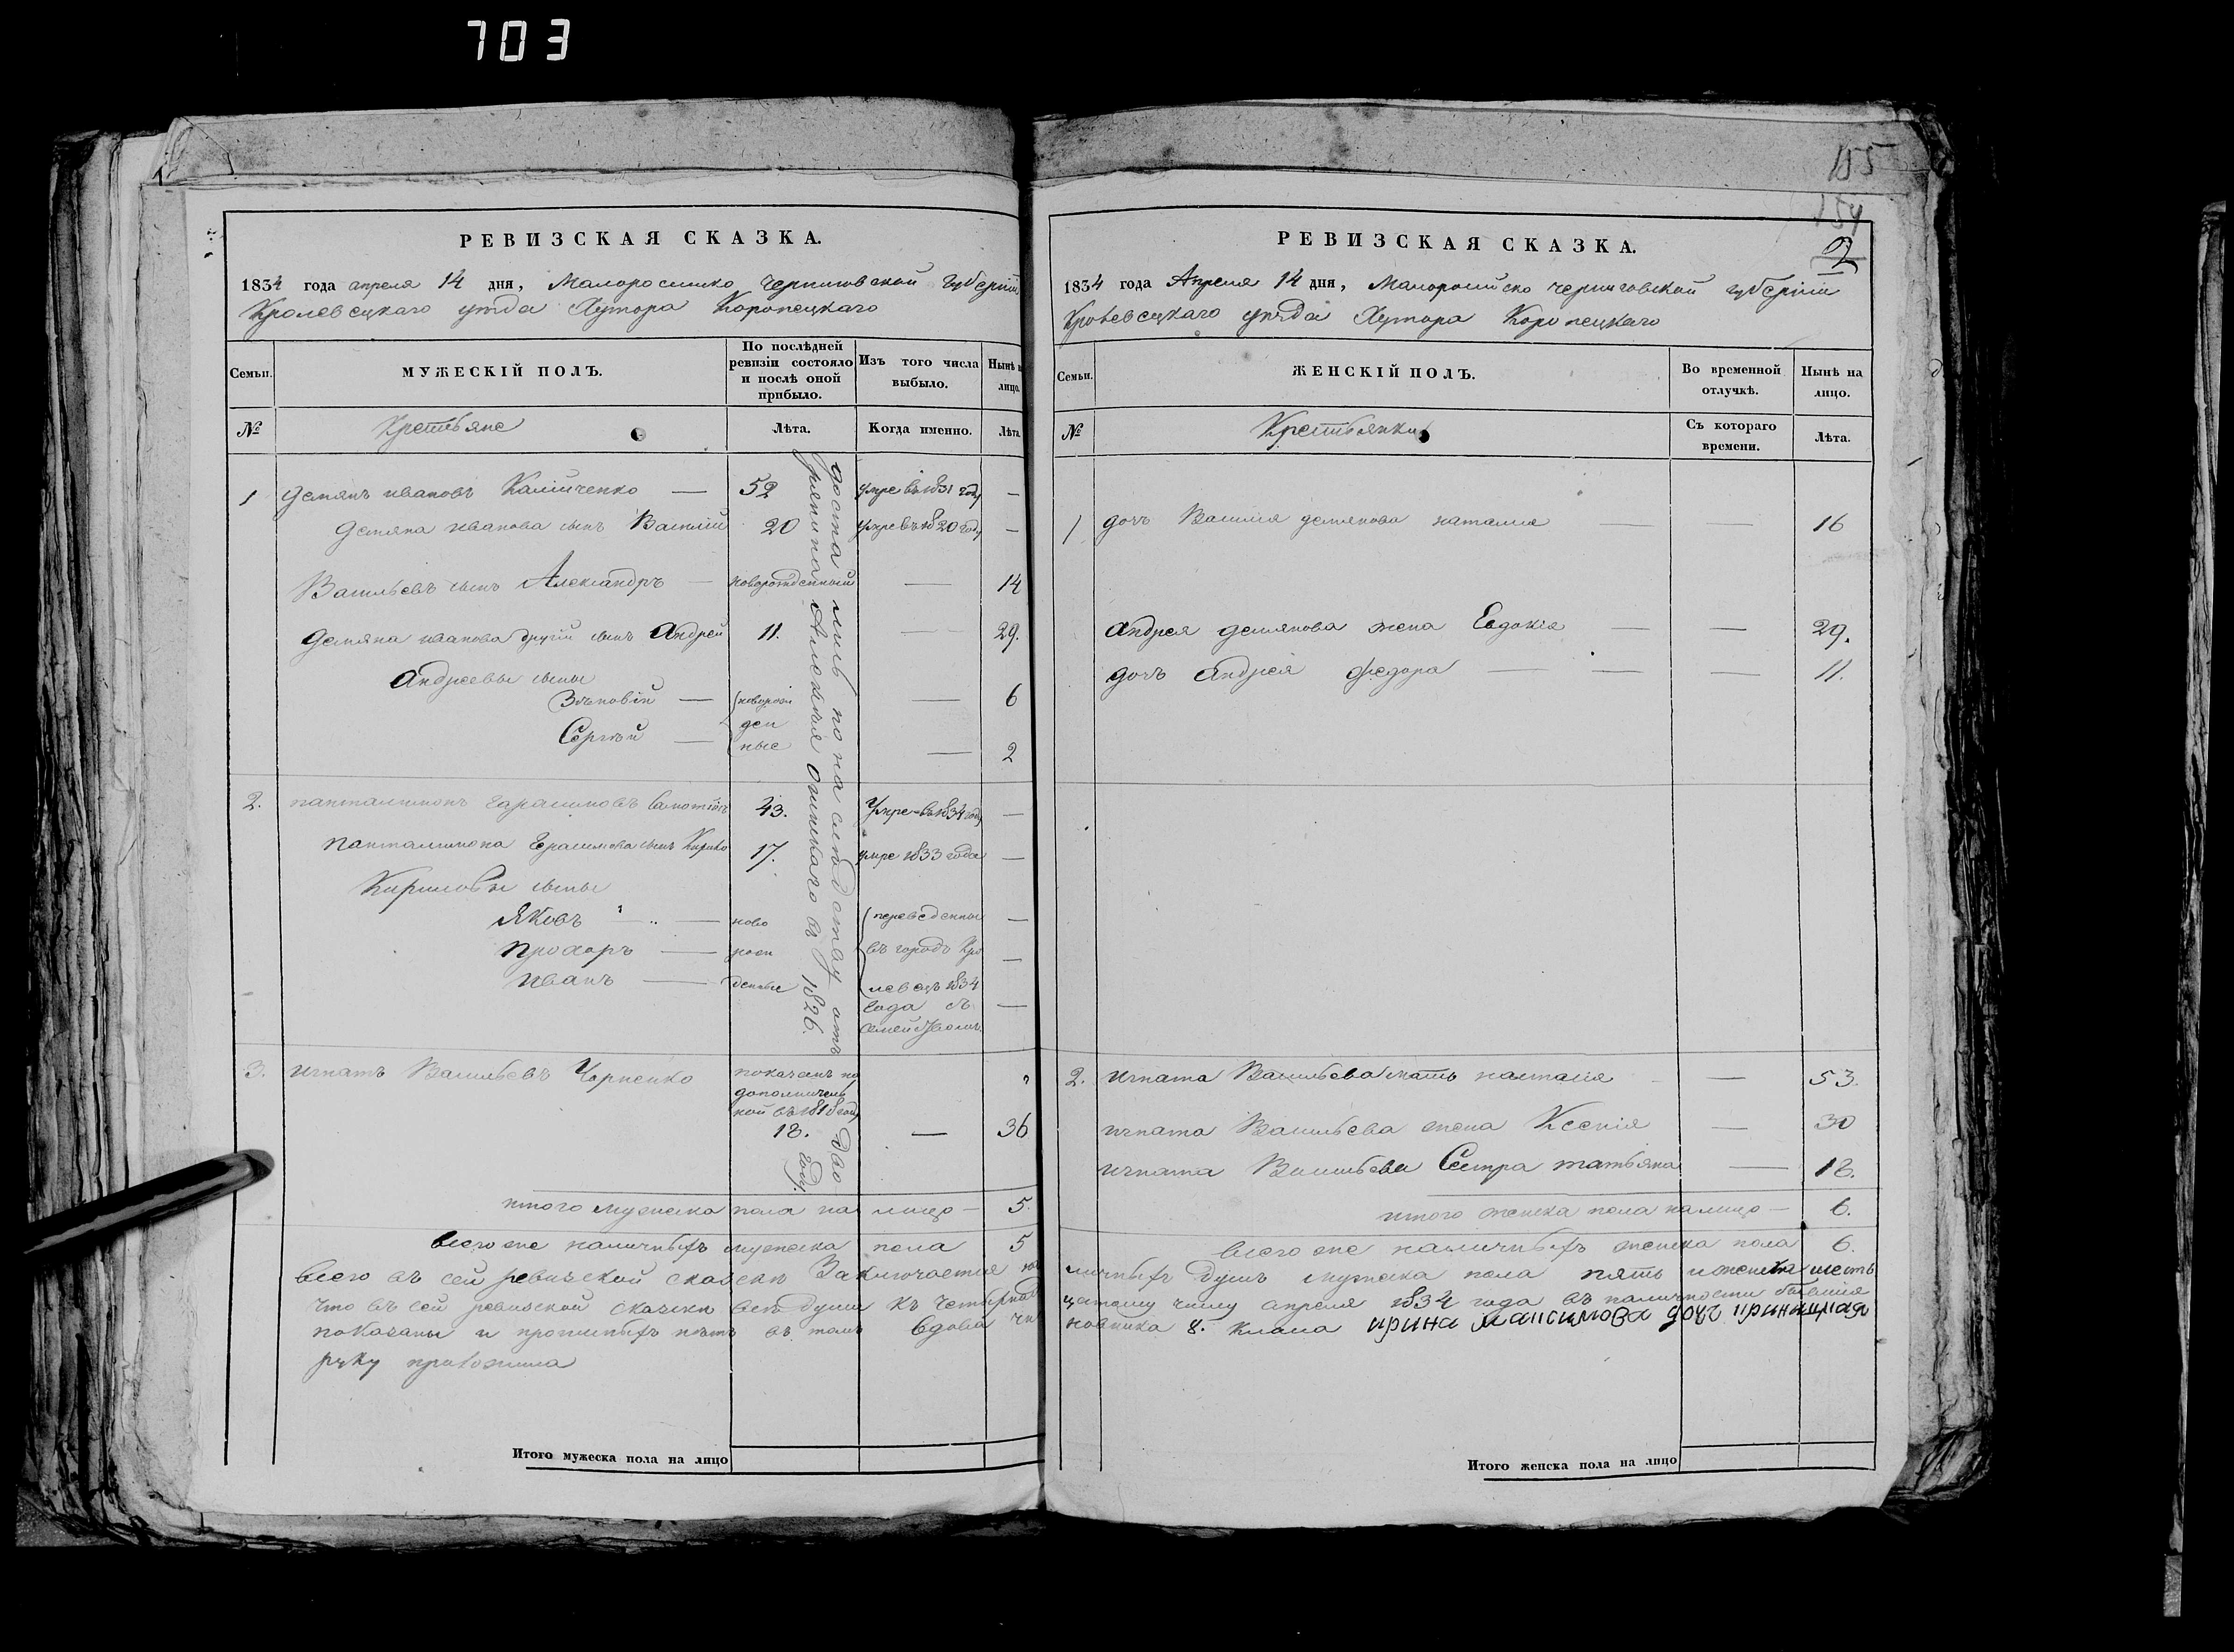 703
155
154
2
РЕВИЗСКАЯ СКАЗКА.
1834 года апреля 14 дня, Малоросийско Черниговской губерніи
Кролевецкаго уѣзда Хутора Коропецкаго
Семьи.
МУЖЕСКІЙ ПОЛЪ.
По послѣдней ревизіи состояло и послѣ оной прибыло.
Изъ того числа выбыло.
Нынѣ на лицо.
№
Крестьяне
Лѣта.
Когда именно.
Лѣта.
1 Демянъ ивановъ — 52 умре въ 1831 году —
Демяна иванова сынъ Василій 20 умре въ 1820 году —
Васильевъ сынъ Александръ — новорожденный — 14
Демяна иванова другій сынъ Андрей 11. — 29.
Андреевы сыны
Зѣновій — новорож — 6
ден
Сергѣй — ные — 2
2. панталимонъ 43. Умре въ 1834 году —
панталимона Герасимова сынъ Кирило 17. умре 1833 года —
Кириловы сыны
Яковъ — ново переведенны —
прохоръ — рож въ городъ Кро —
иванъ — денные левецъ 1834
года съ —
3. игнатъ Васильевъ Чорненко показанъ по
дополнитель
ной въ 1818 году
18. — 36
досталисъ по наслѣдству отъ
1826. году.
итого мужеска пола на лицо — 5.
всего же наличныхъ мужеска пола 5
всего въ сей ревизской сказки Заключается на
что въ сей ревизской сказки всѣ души къ четырнад
показаны и прописныхъ нѣтъ въ томъ вдова чи
руку приложила
Итого мужеска пола на лицо
РЕВИЗСКАЯ СКАЗКА.
1834 года Апреля 14 дня, Малоросийско черниговской губерніи
Кролевецкаго уѣзда Хутора Коропецкаго
Семьи.
ЖЕНСКІЙ ПОЛЪ.
Во временной отлучкѣ.
Нынѣ на лицо.
№
Крестьянки
Съ котораго времени.
Лѣта.
1 дочь Василія демянова наталия — 16
андрея демянова жена Евдокія — — 29.
дочь андрея федора — — — 11.
2. игната Васильева мать наталія — 53.
игната Васильева жена Ксенія — 30
игната Васильева Сестра татьяна — 18.
итого женска пола налицо — 6.
всего же наличныхъ женска пола 6.
личныхъ душъ мужеска пола пять и женска шесть
цатому числу апреля 1834 года въ наличности бывшие
новника 8. класа ирина максимова дочь
Итого женска пола на лицо